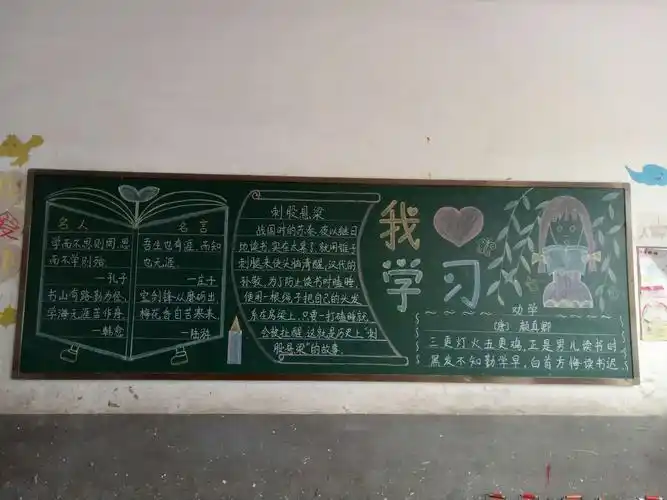 名人
名言
学而不思则罔,思
而不学则殆
—孔子
书山有路勤为径,
学海无涯苦作舟
—韩愈
吾生也有涯,而知
也无涯.
—庄子
宝剑锋从磨砺出
梅花香自苦寒来
—陆游
刺股悬梁
战国时的苏秦,夜以继日
地读书,实在太累了,就用锥子
刺腿来使头脑清醒,汉代的
孙敬,为了防止读书时瞌睡,
使用一根绳子把自己的头发
系在房梁上,只要一打瞌睡就
会被扯醒.这就是历史上"刺
股悬梁"的故事.
我
学习
劝学
(唐) 颜真卿
三更灯火五更鸡,正是男儿读书时
黑发不知勤学早,白首方悔读书迟